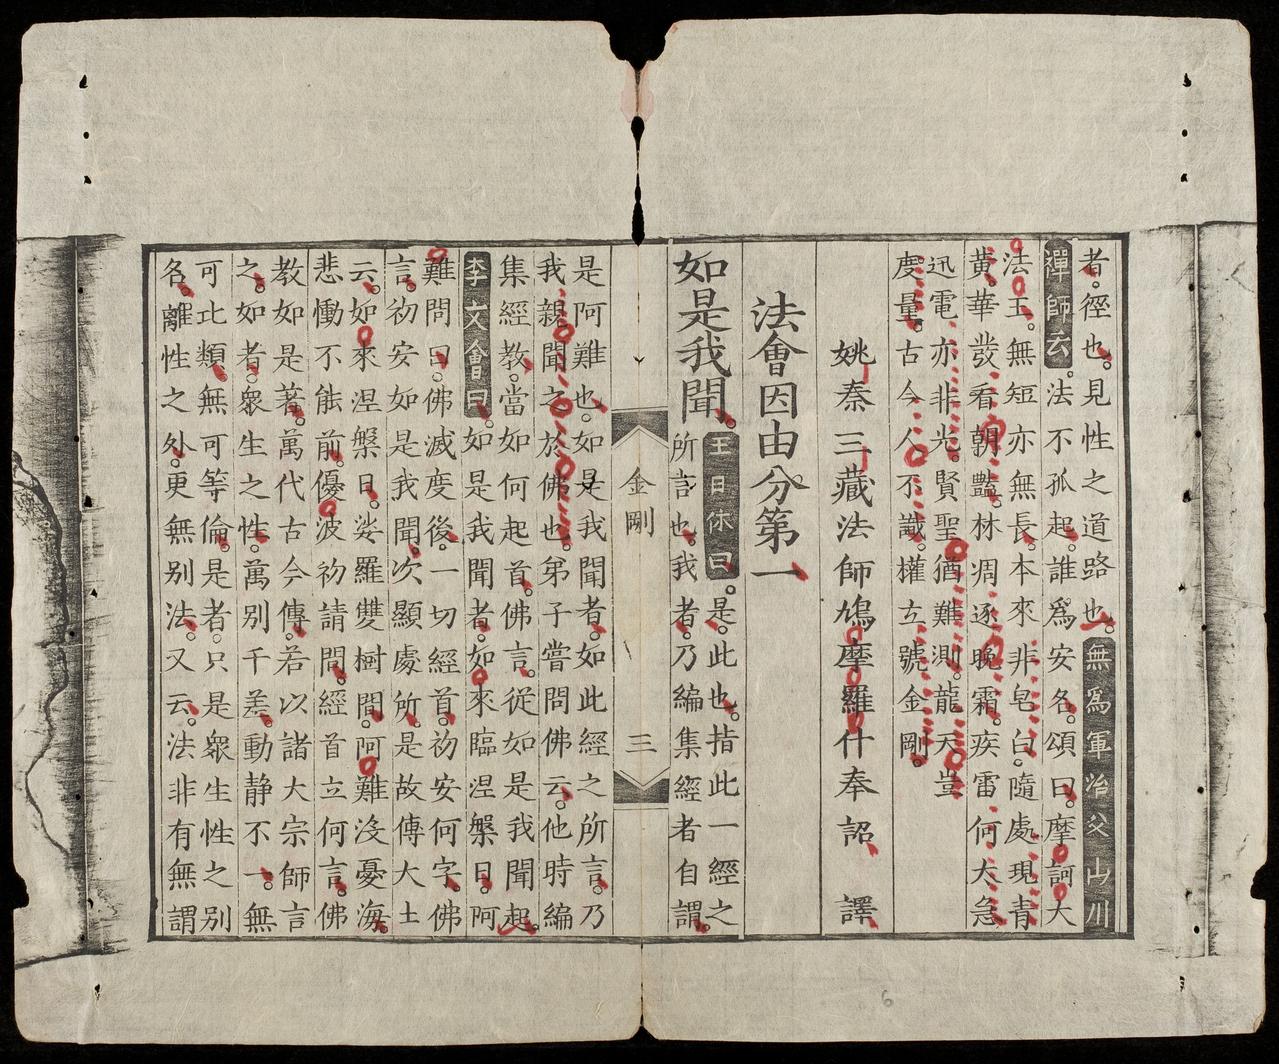 者。徑也。見性之道路也。無爲軍冶父山川
禪師云。法不孤起。誰爲安名。頌曰。摩訶大
法王。無短亦無長。本來非皂白。隨處現青
黃。華發看朝豔。林凋逐晚霜。疾雷何太急
迅電亦非光。賢聖猶難測。龍天豈
度量。古今人不識。權立號金剛。
姚秦三藏法師鳩摩羅什奉詔譯
法會因由分第一
如是我聞。王日休曰。是。此也。指此一經之
所言也。我者。乃編集經者自謂。
金剛
三
是阿難也。如是我聞者。如此經之所言。乃
我親聞之於佛也。弟子嘗問佛云。他時編
集經教。當如何起首。佛言。從如是我聞起。
李文會曰。如是我聞者。如來臨涅槃日。阿
難問曰。佛滅度後。一切經首。初安何字。佛
言。初安如是我聞。次顯處所。是故傳大士
云。如來涅槃日。娑羅雙樹間。阿難沒憂海。
悲慟不能前。優波初請問。經首立何言。佛
教如是著。萬代古今傳。若以諸大宗師言
之。如者。衆生之性。萬別千差。動靜不一。無
可比類。無可等倫。是者。只是衆生性之別
名。離性之外。更無別法。又云。法非有無謂
6